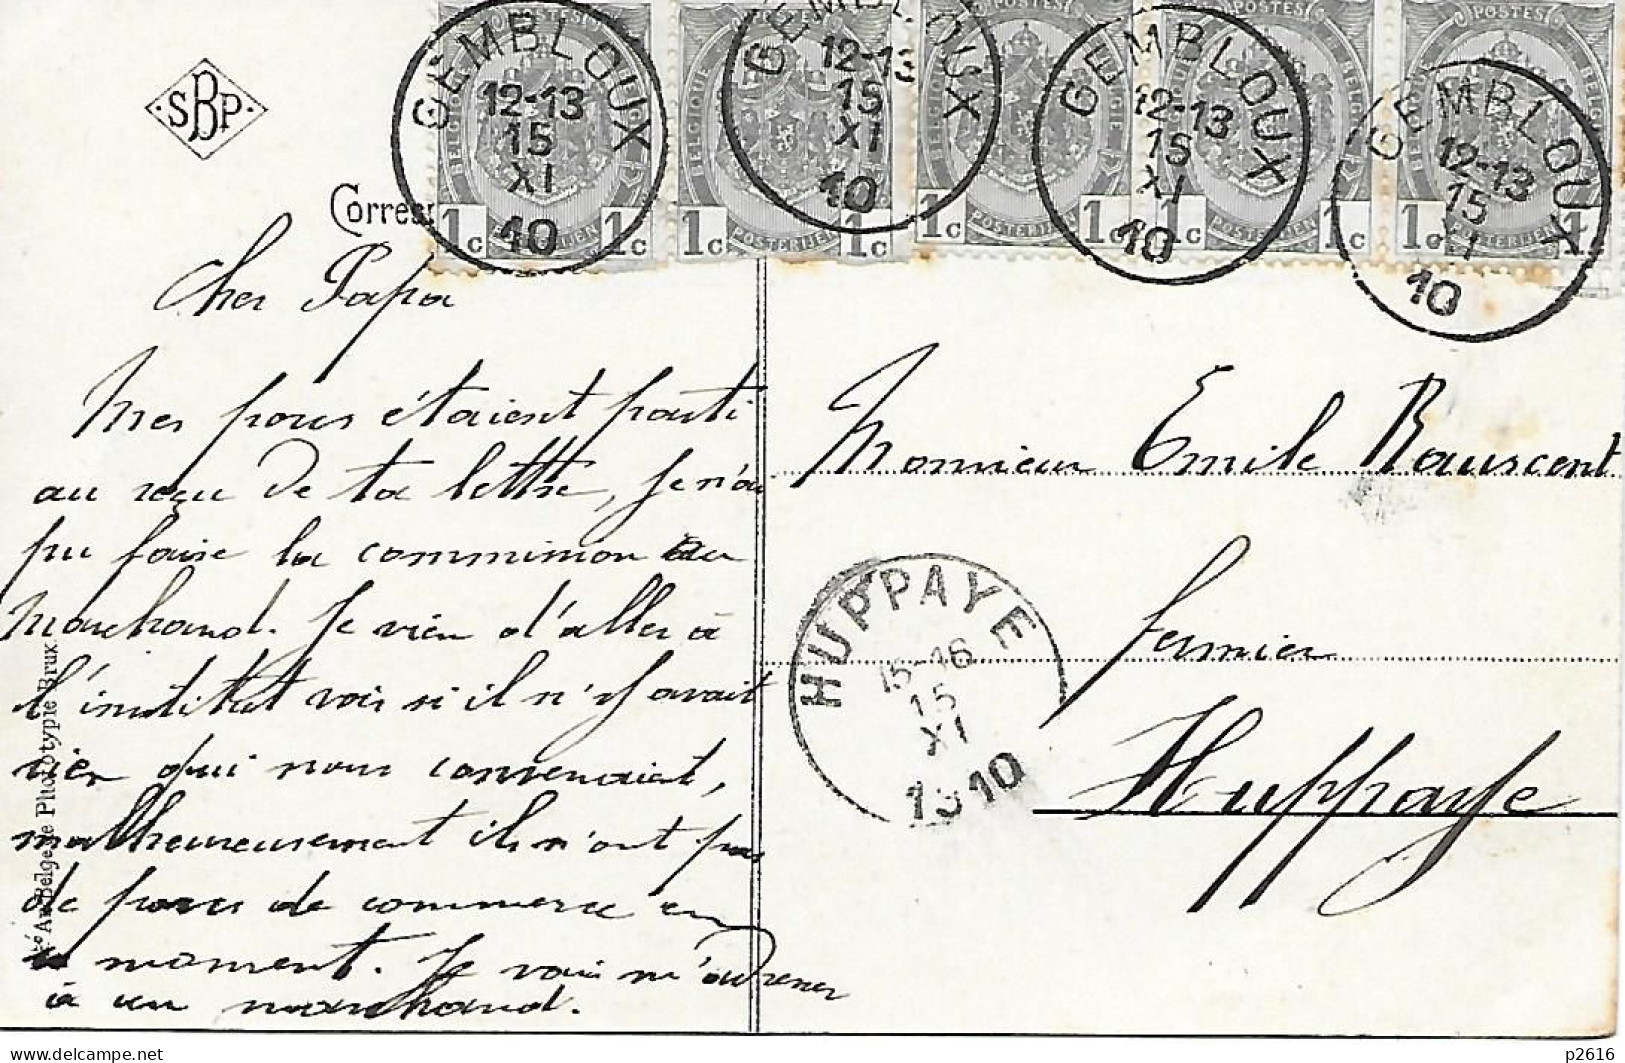 SBP
Corres
POSTES POSTES POSTES
BELGIQUE BELGIE
POSTERIJEN POSTERIJEN POSTERIJEN POSTERIJEN POSTERIJEN
1c 1c 1c 1c 1c 1c 1c 1c 1c 1
GEMBLOUX
12-13
15
XI
10
GEMBLOUX
12-13
15
XI
10
GEMBLOUX
12-13
15
XI
10
GEMBLOUX
12-13
15
XI
10
Cher Papa
Mes porcs étaient parti
au reçu de ta lettre, je n'ai
pu faire la commission au
marchand. Je vien d'aller à
l'institut voir si il n'y avait
rien qui nous convenait,
malheureusement ils n'ont pas
de porcs de commerce en
ce moment. Je vais m'adresser
à un marchand.
Monsieur Emile Rauscent
fermier
Huppaye
HUPPAYE
15-16
15
XI
1910
Belge de Phototypie Brux
delcampe.net
p2616